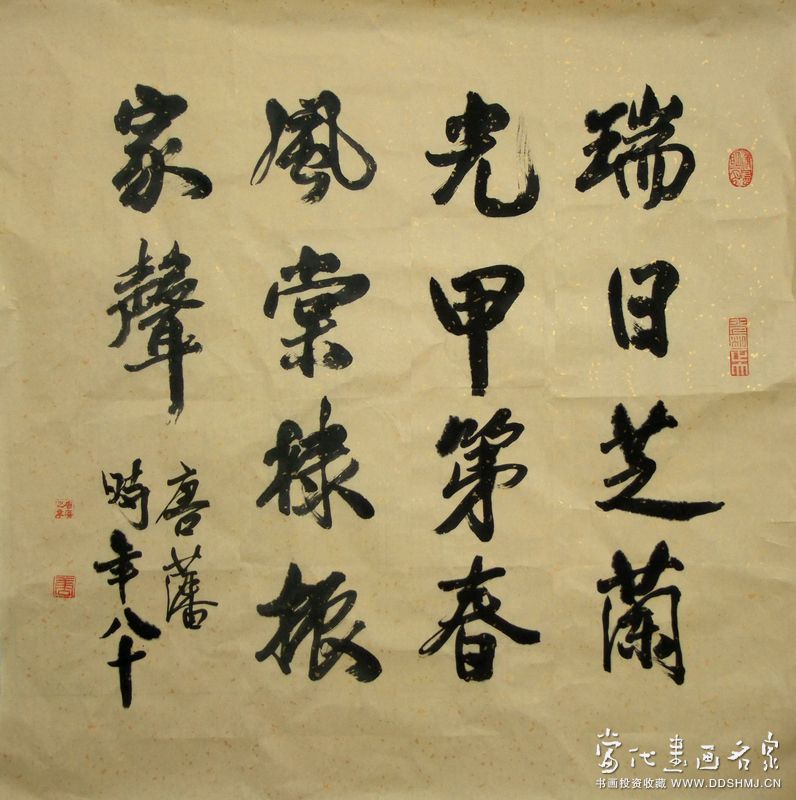 瑞日芝蘭
光甲第春
風棠棣振
家聲
唐藩
時年八十
當代書画名家
书画投资收藏 WWW.DDSHMJ.CN